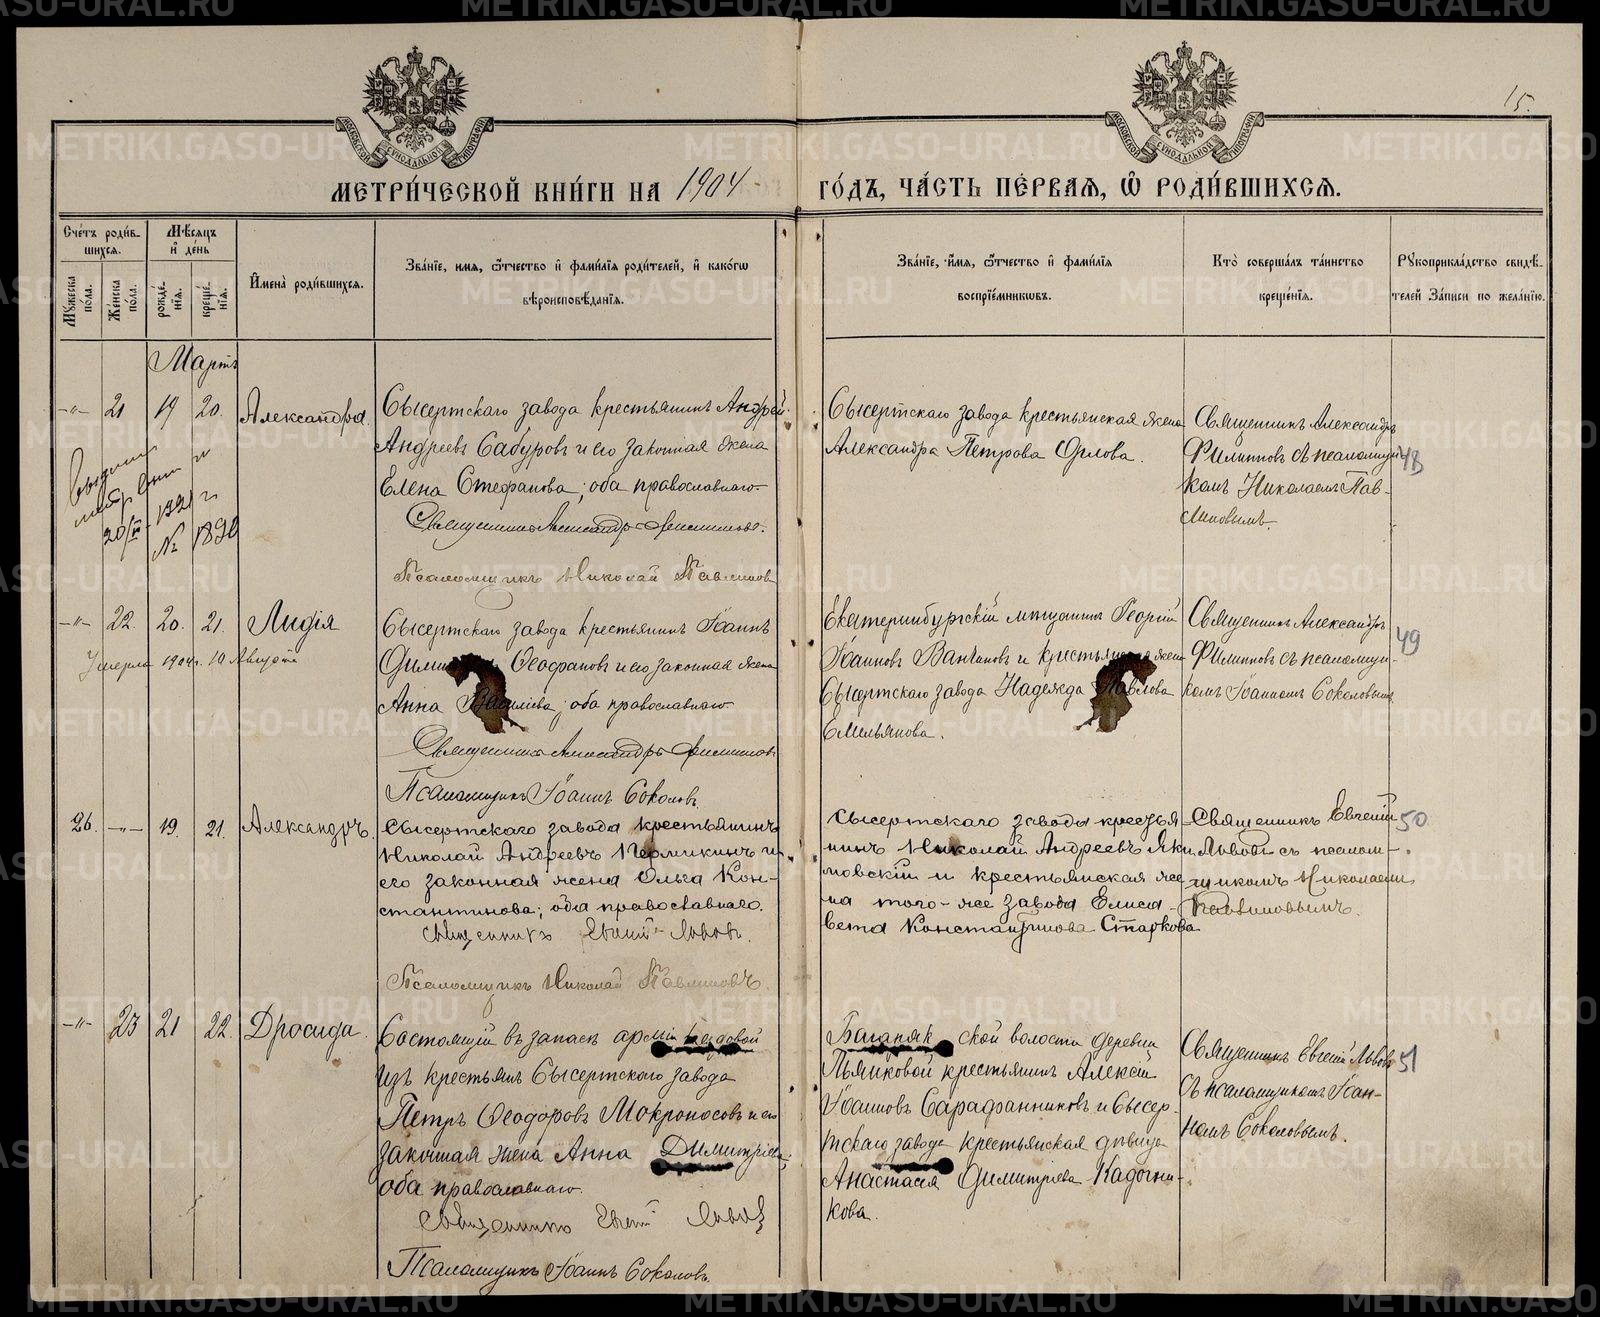 15.
МЕТРИ́ЧЕСКОЙ КНИ́ГИ НА 1904 ГО́ДЪ, ЧА́СТЬ ПЕ́РВАЯ, Ѡ РОДИ́ВШИХСЯ.
Сче́тъ роди́в-
шихся.
Мѣ́сяцъ
и де́нь
Мꙋ́жеска по́ла.
Же́нска по́ла.
рожде́-
нія.
креще́-
нія.
Имена̀ роди́вшихся.
Зва́ніе, имя, ѻ҆́тчество и фами́лія роди́телей, и како́гѡ
вѣроисповѣ́данія.
Зва́ніе, и́мя, ѻ҆́тчество и фами́лія
воспріе́мникѡвъ.
Кто̀ соверша́лъ та́инство
креще́нія.
Рꙋкоприкла́дство свидѣ́-
телей за́писи по жела́нію.
Мартъ
-"- 21 19 20. Александра
Сысертскаго завода крестьянинъ Андрей
Андреевъ Сабуровъ и его законная жена
Елена Стефанова; оба православнаго.
Священникъ Александръ Филипповъ.
Псаломщикъ Николай Павлиновъ
Сысертскаго завода крестьянская жена
Александра Петрова Орлова.
Священникъ Александръ
Филипповъ съ псаломщи-
комъ Николаемъ Пав-
линовымъ.
48
20/III 1921 г.
№ 1890
-"- 22. 20. 21. Лидія
Умерла 1904 г. 10 Августа
Сысертскаго завода крестьянинъ Іоаннъ
Ѳеофановъ и его законная жена
Анна Василіева; оба православнаго
Священникъ Александръ Филипповъ
Псаломщикъ Іоаннъ Соколовъ.
Екатеринбургскій мѣщанинъ Георгій
Іоанновъ Ванчиновъ и крестьянская жена
Сысертскаго завода Надежда Павлова
Емельянова.
Священникъ Александръ
Филипповъ съ псаломщи-
комъ Іоанномъ Соколовымъ
49
26. -"- 19. 21. Александръ.
Сысертскаго завода крестьянинъ
Николай Андреевъ Пермикинъ и
его законная жена Ольга Кон-
стантинова; оба православнаго.
Священникъ Евгений Львовъ.
Псаломщикъ Николай Павлиновъ.
Сысертскаго завода крестья
нинъ Николай Андреевъ Яки
мовскій и крестьянская же
на того-же завода Елиса-
вета Константинова Старкова
Священникъ Евгеній
Львовъ съ псалом-
щикомъ Николаемъ
Павлиновымъ.
50
-"- 23 21 22. Дросида
Состоящій въ запасѣ арміи рядовой
изъ крестьянъ Сысертскаго завода
Петръ Ѳеодоровъ Мокроносовъ и его
законная жена Анна Димитріева;
оба православнаго.
Священникъ Евгеній Львовъ
Псаломщикъ Іоаннъ Соколовъ.
Багарякской волости деревни
крестьянинъ Алексій
Іоанновъ Сарафанниковъ и Сысер-
тскаго завода крестьянская дѣвица
Анастасія Димитріева Кадочни-
кова.
Священникъ Евгеній Львовъ
съ псаломщикомъ Іоан-
номъ Соколовымъ.
51
METRIKI.GASO-URAL.RU